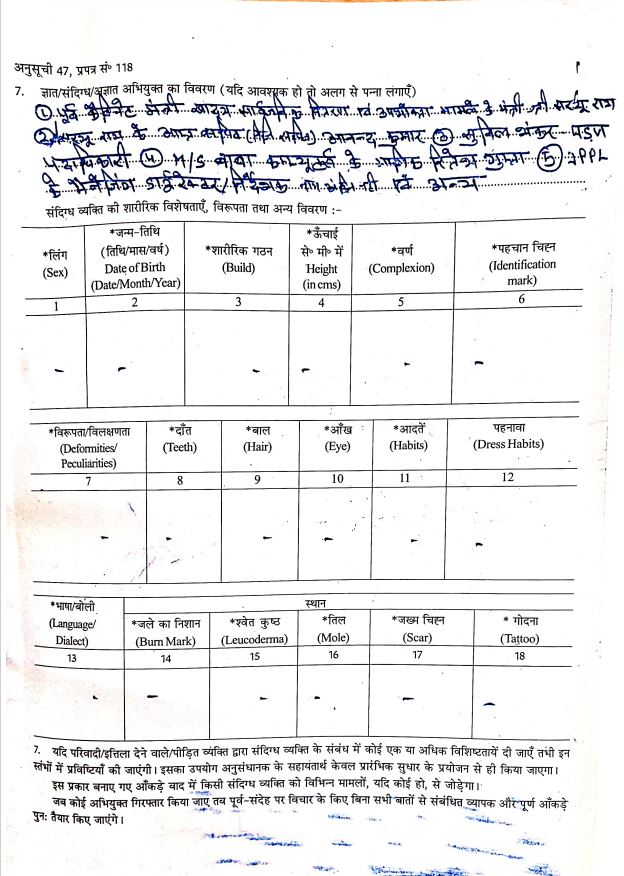 अनुसूची 47, प्रपत्र सं॰ 118
7. ज्ञात/संदिग्ध/अज्ञात अभियुक्त का विवरण (यदि आवश्यक हो तो अलग से पन्ना लगाएँ)
① पूर्व कैबिनेट मंत्री खाद्य सार्वजनिक वितरण एवं उपभोक्ता मामले के मंत्री श्री सरयू राय
② सरयू राय के आप्त सचिव (निजी सचिव) आनन्द कुमार ③ सुनिल शंकर
पदाधिकारी ④ M/S बाबा कम्प्यूटर्स के मालिक रितेश गुप्ता ⑤ JPPL
के मैनेजिंग डाईरेक्टर/निर्देशक एवं अन्य
संदिग्ध व्यक्ति की शारीरिक विशेषताएँ, विरूपता तथा अन्य विवरण :-
*लिंग (Sex) *जन्म-तिथि (तिथि/मास/वर्ष) Date of Birth (Date/Month/Year) *शारीरिक गठन (Build) *ऊँचाई से॰ मी॰ में Height (in cms) *वर्ण (Complexion) *पहचान चिह्न (Identification mark)
1 2 3 4 5 6
- - - - - -
*विरूपता/विलक्षणता (Deformities/ Peculiarities) *दाँत (Teeth) *बाल (Hair) *आँख (Eye) *आदतें (Habits) पहनावा (Dress Habits)
7 8 9 10 11 12
- - - - - -
*भाषा/बोली (Language/ Dialect) स्थान
*जले का निशान (Burn Mark) *श्वेत कुष्ठ (Leucoderma) *तिल (Mole) *जख्म चिह्न (Scar) * गोदना (Tattoo)
13 14 15 16 17 18
- - - - - -
7. यदि परिवादी/इत्तिला देने वाले/पीड़ित व्यक्ति द्वारा संदिग्ध व्यक्ति के संबंध में कोई एक या अधिक विशिष्टतायें दी जाएँ तभी इन
स्तंभों में प्रविष्टियाँ की जाएंगी। इसका उपयोग अनुसंधानक के सहायतार्थ केवल प्रारंभिक सुधार के प्रयोजन से ही किया जाएगा।
इस प्रकार बनाए गए आँकड़े बाद में किसी संदिग्ध व्यक्ति को विभिन्न मामलों, यदि कोई हो, से जोड़ेगा।
जब कोई अभियुक्त गिरफ्तार किया जाए तब पूर्व-संदेह पर विचार के किए बिना सभी बातों से संबंधित व्यापक और पूर्ण आँकड़े
पुनः तैयार किए जाएंगे।